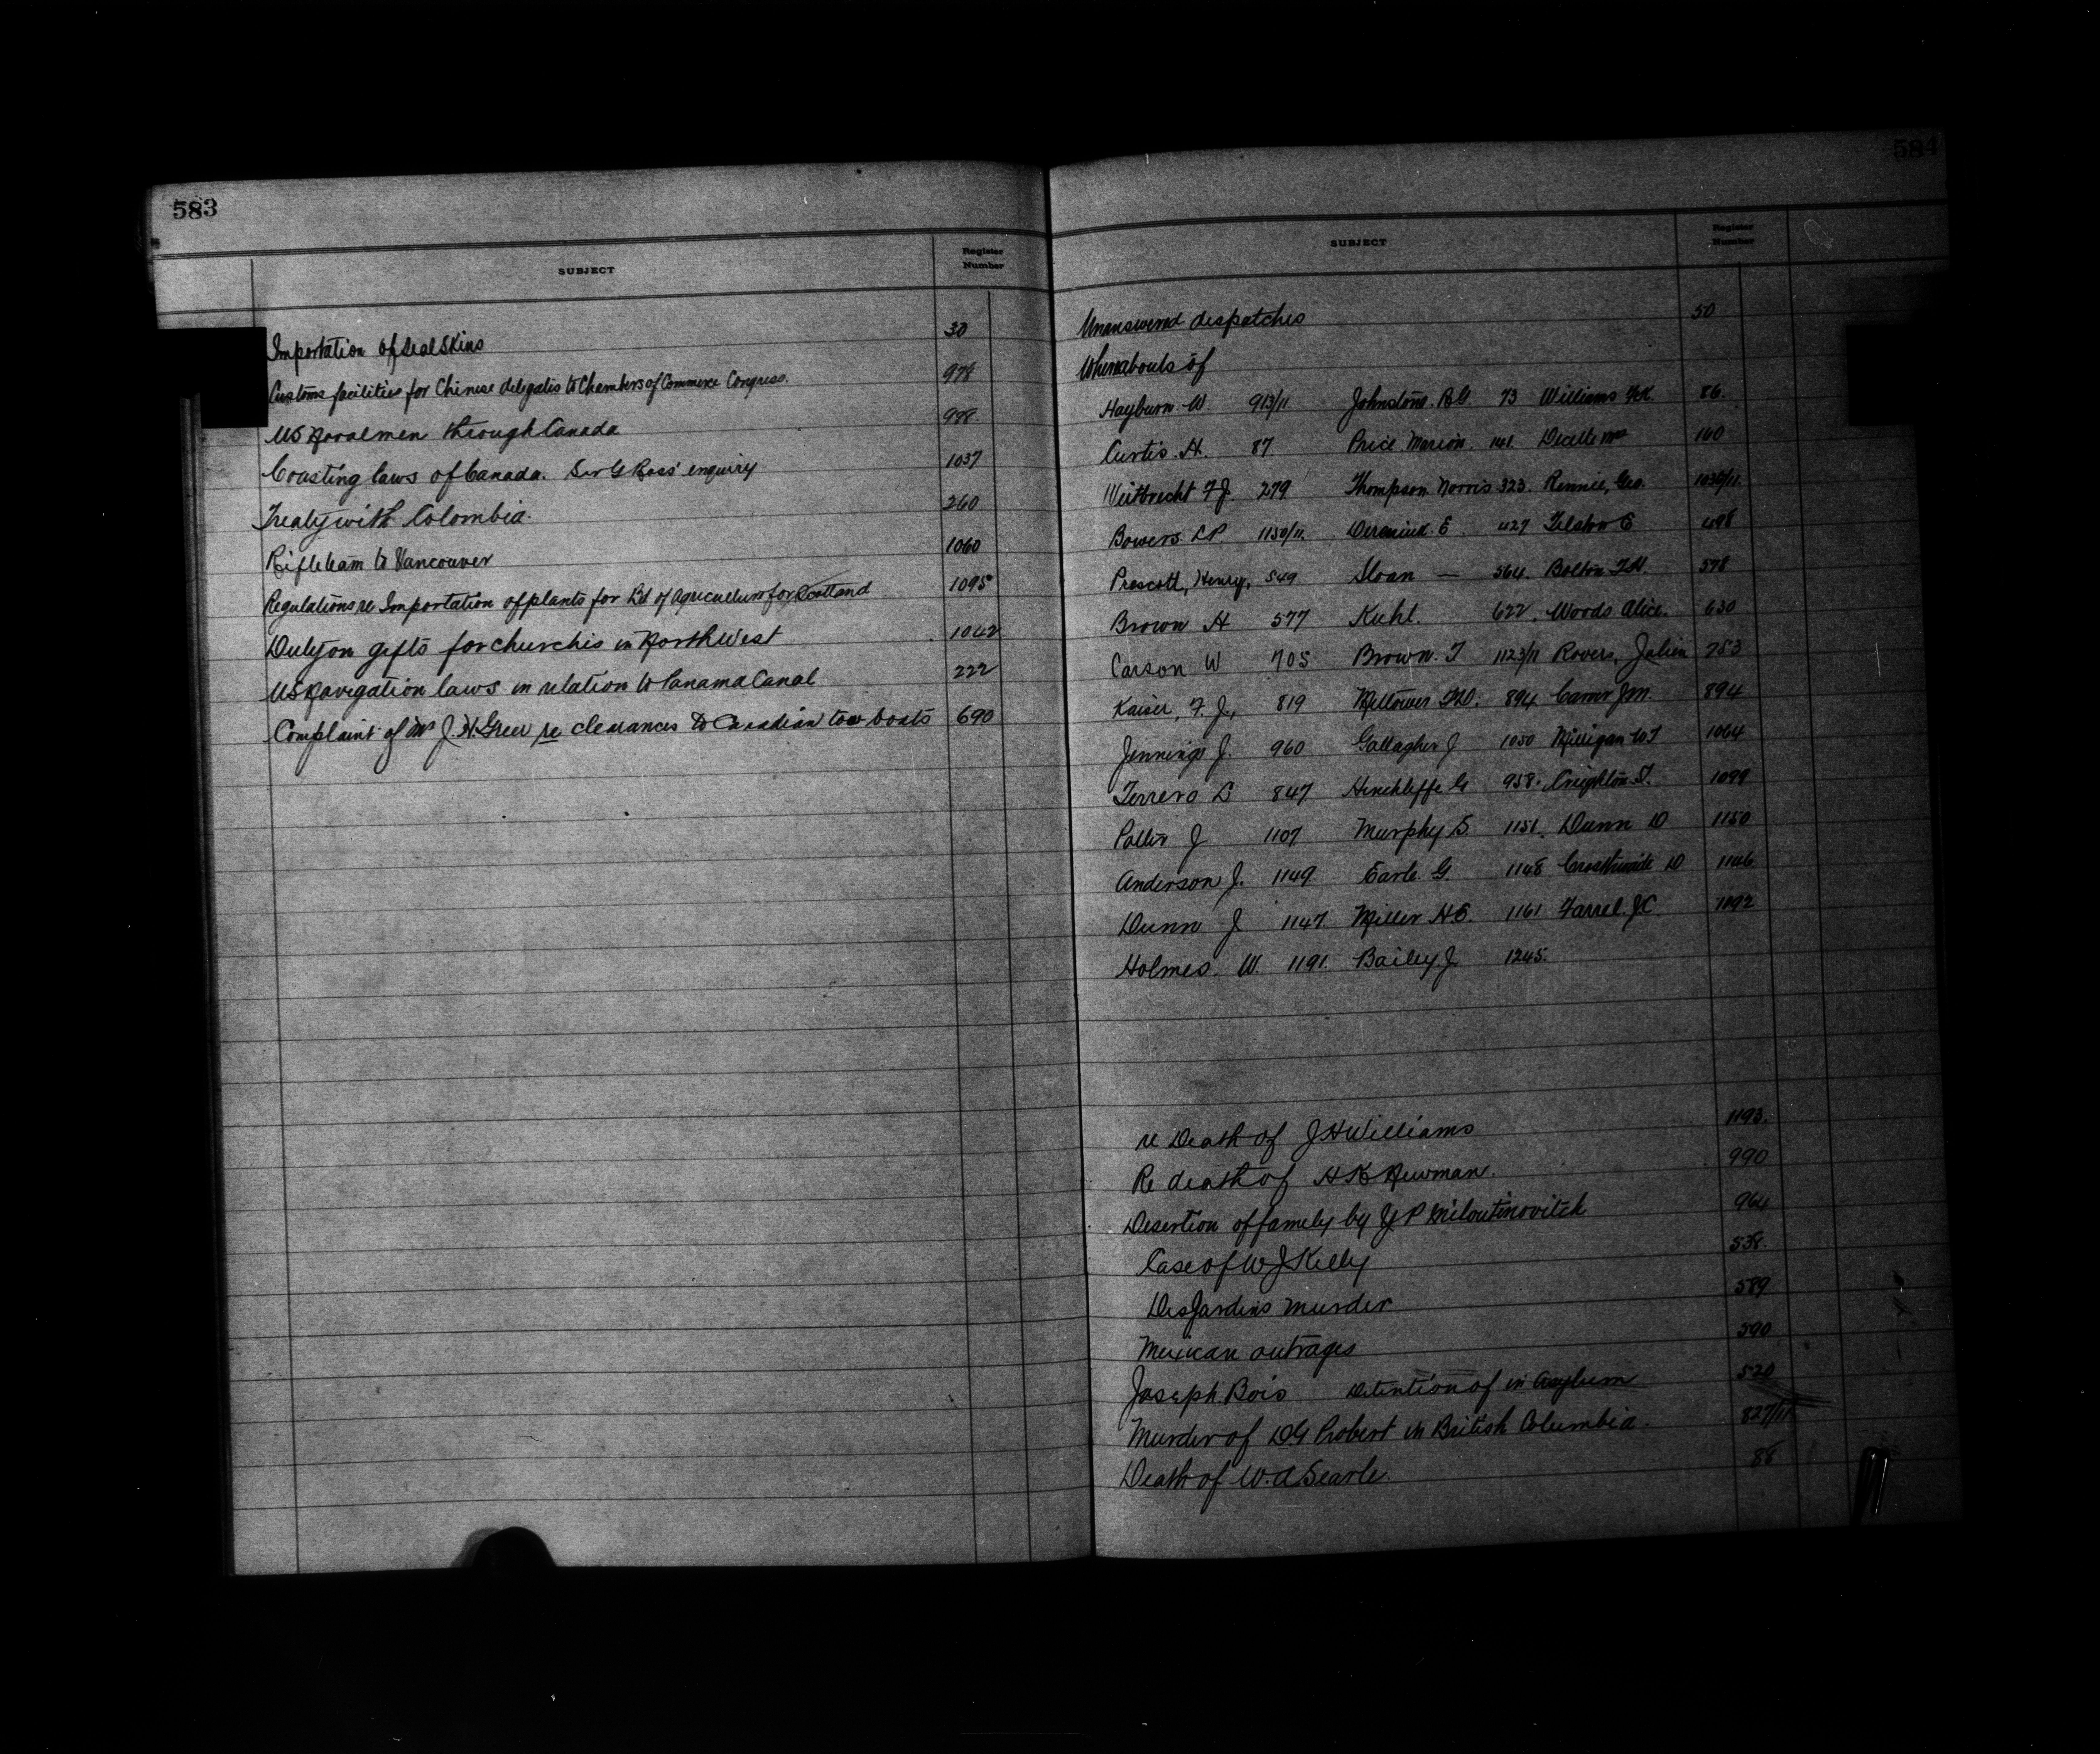 583
SUBJECT
Register Number
Importation of Seal Skins 30
Customs facilities for Chinese delegates to Chambers of Commerce Congress. 978
US Navalmen through Canada 998.
Coasting laws of Canada. Sir G Ross' enquiry 1037
Treaty with Colombia. 260
Rifle team to Vancouver 1060
Regulations re Importation of plants for Bd of Agriculture for Scotland 1095
Duty on gifts for churches in North West 1042
US Navigation laws in relation to Panama Canal 222
Complaint of Mr J. H. Greer re clearances to Canadian tow boats 690
584
SUBJECT
Register Number
Unanswered despatches 50
Whereabouts of
Hayburn. W. 913/11. Johnstone. R.G. 73 Williams 86.
Curtis. H. 87 Price. Marion. 141. Decelle Mrs 160
Weitbrecht F J. 279 Thompson Norris 323. Rennie, Geo. 1030/11.
Bowers. L P. 1150/11. E. 427 E 498
Prescott, Henry, 549 Sloan — 564. Bolton T.H. 578
Brown H 577 Kuhl. 622. Woods Alice. 630
Carson W 705 Brown. T 1123/11 Rovers, Julien 753
Kaiser, F. J., 819 894 J M. 894
Jennings J. 960 Gallagher J 1050 Milligan W J 1064
Ferrero D 847 Hinchliffe G 958. Creighton. T. 1099
Potter J 1107 Murphy S. 1151. Dunn D 1150
Anderson J. 1149 Earle G. 1148 Crosthwaite D 1146
Dunn J 1147 Miller H.E. 1161 Farrel J C 1192
Holmes. W. 1191. Bailey J 1245.
re Death of J H Williams 1193.
Re death of H K Newman. 990
Desertion of family by Y P Miloutinovitch 964
Case of W J Kelly 538.
DesJardins murder 589
Mexican outrages 590
Joseph Bois Detention of in Asylum 520
Murder of D G Probert in British Columbia. 827/11
Death of W. A Searle. 88